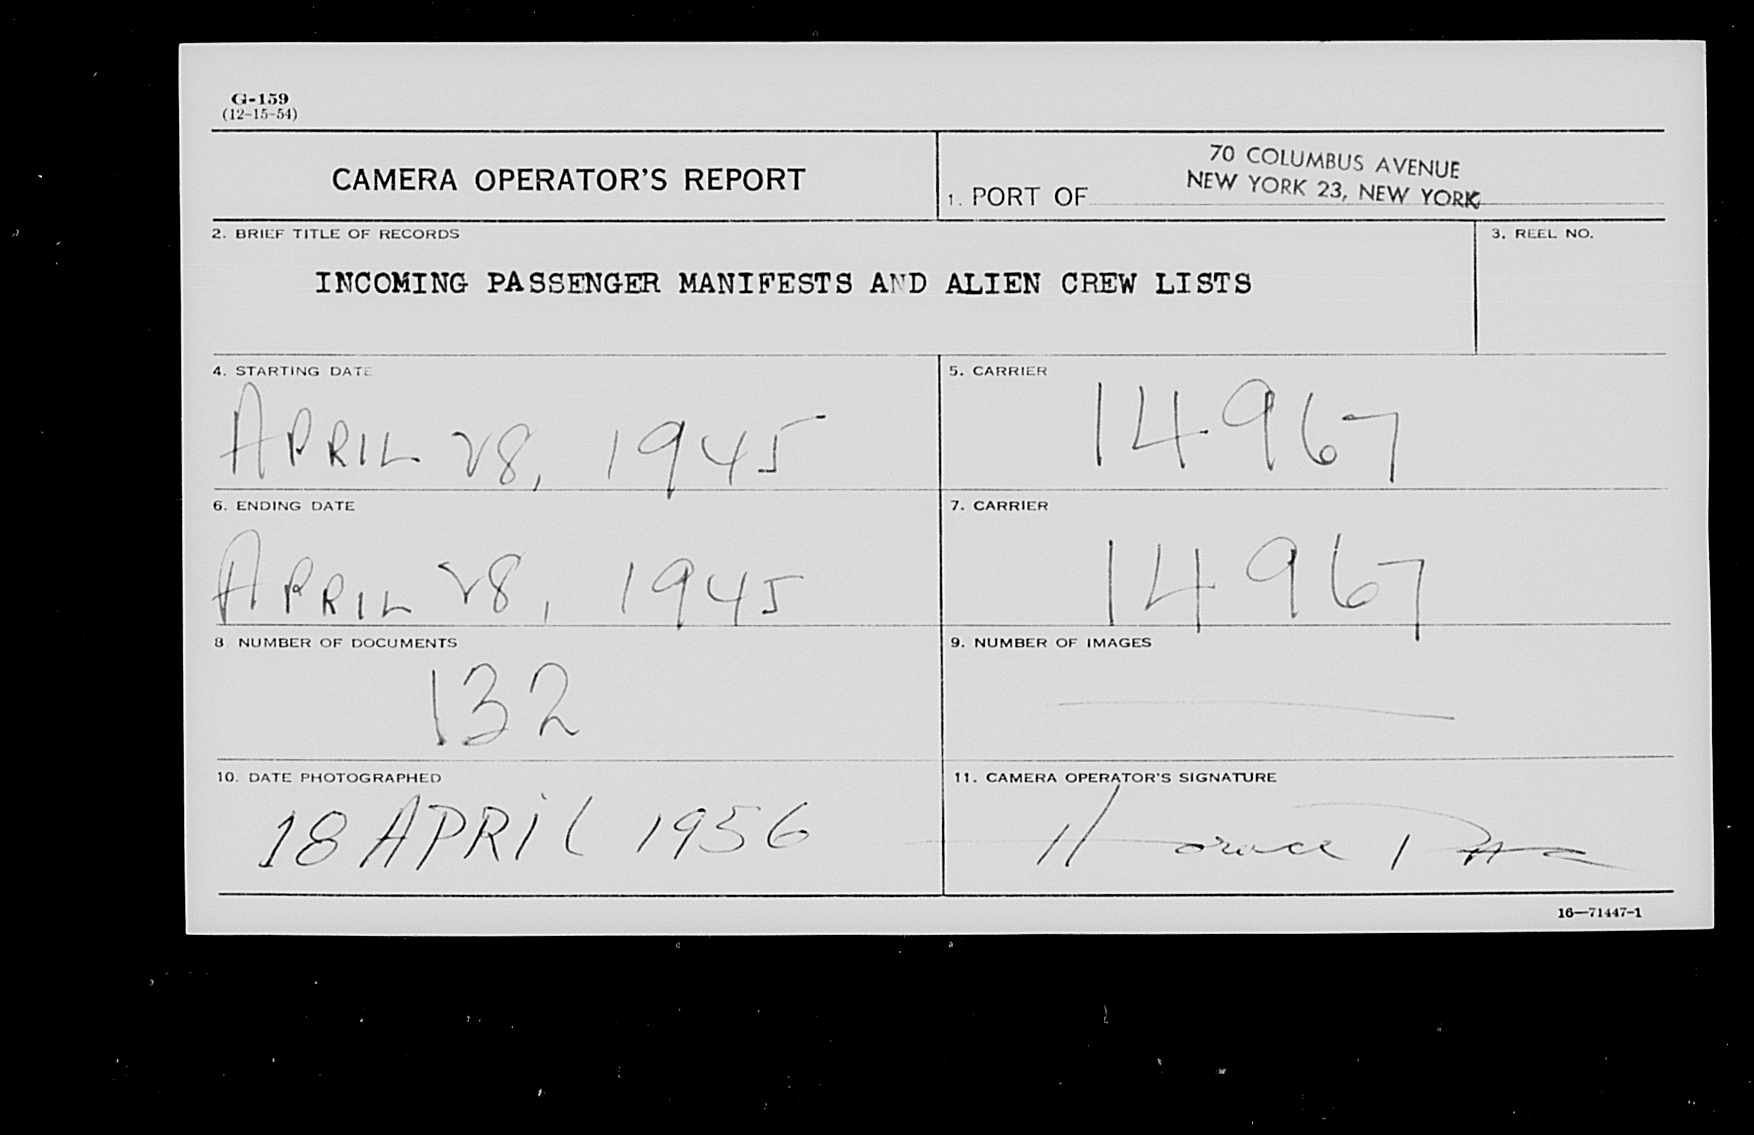 G-159
(12-15-54)
CAMERA OPERATOR'S REPORT
1. PORT OF
70 COLUMBUS AVENUE
NEW YORK 23, NEW YORK
2. BRIEF TITLE OF RECORDS
3. REEL NO.
INCOMING PASSENGER MANIFESTS AND ALIEN CREW LISTS
4. STARTING DATE
5. CARRIER
APRIL 28, 1945
14967
6. ENDING DATE
7. CARRIER
APRIL 28, 1945
14967
8 NUMBER OF DOCUMENTS
9. NUMBER OF IMAGES
132
10. DATE PHOTOGRAPHED
11. CAMERA OPERATOR'S SIGNATURE
18 APRIL 1956
Horace
16—71447-1